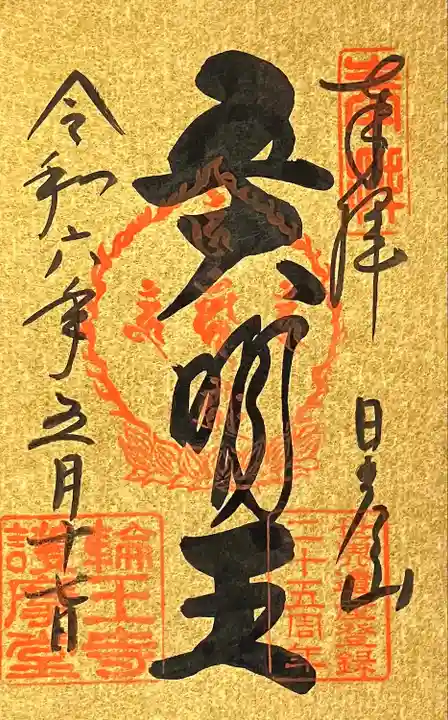 奉拝 日光山
世界遺産登録
二十五周年
五大明王
令和六年五月十七日
輪王寺
護摩堂